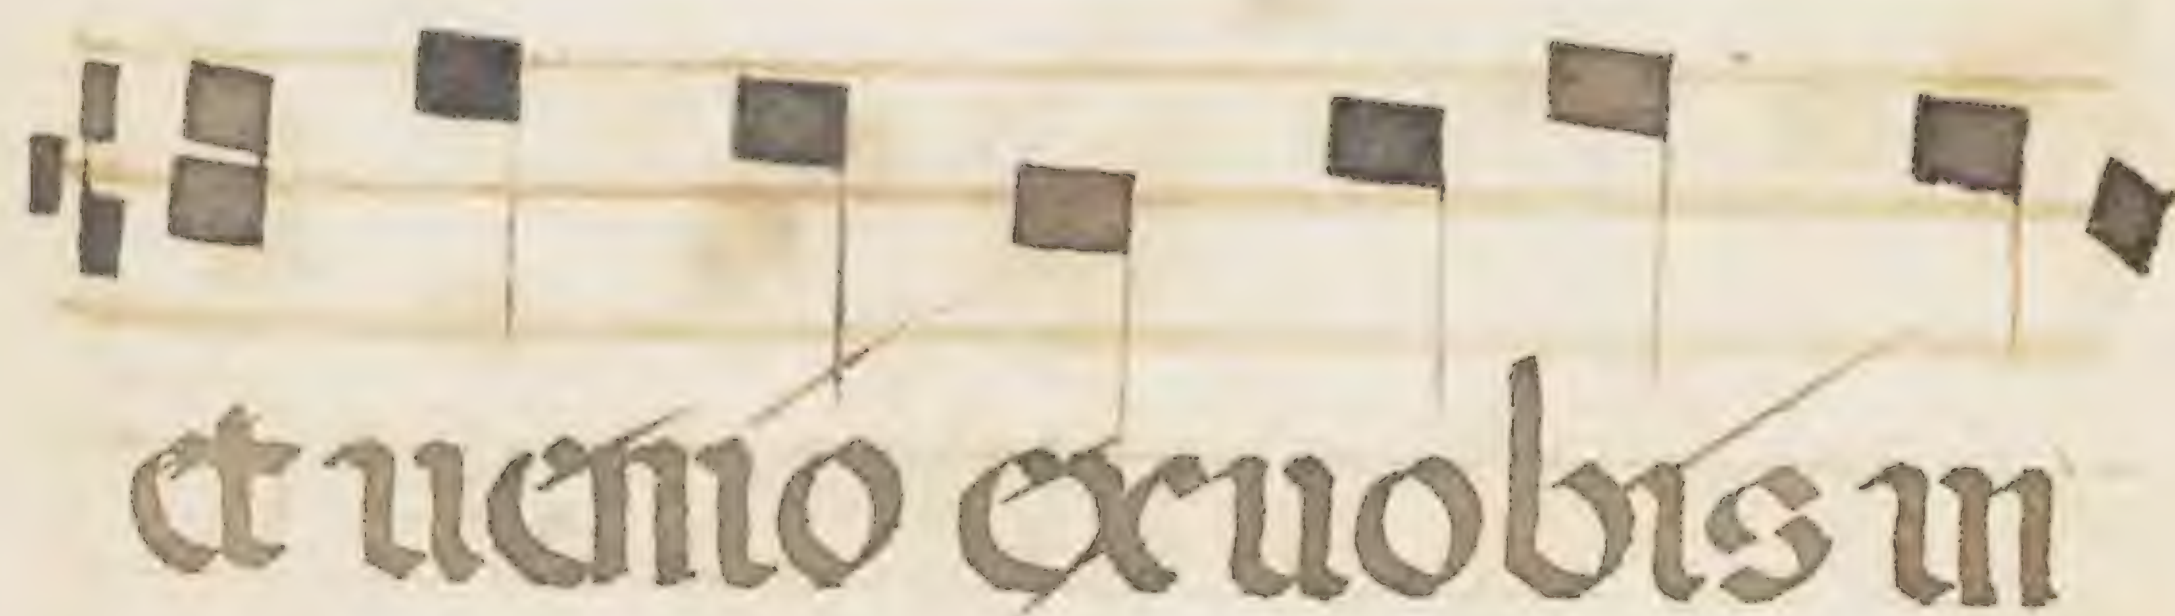 et uenio ex uobis in